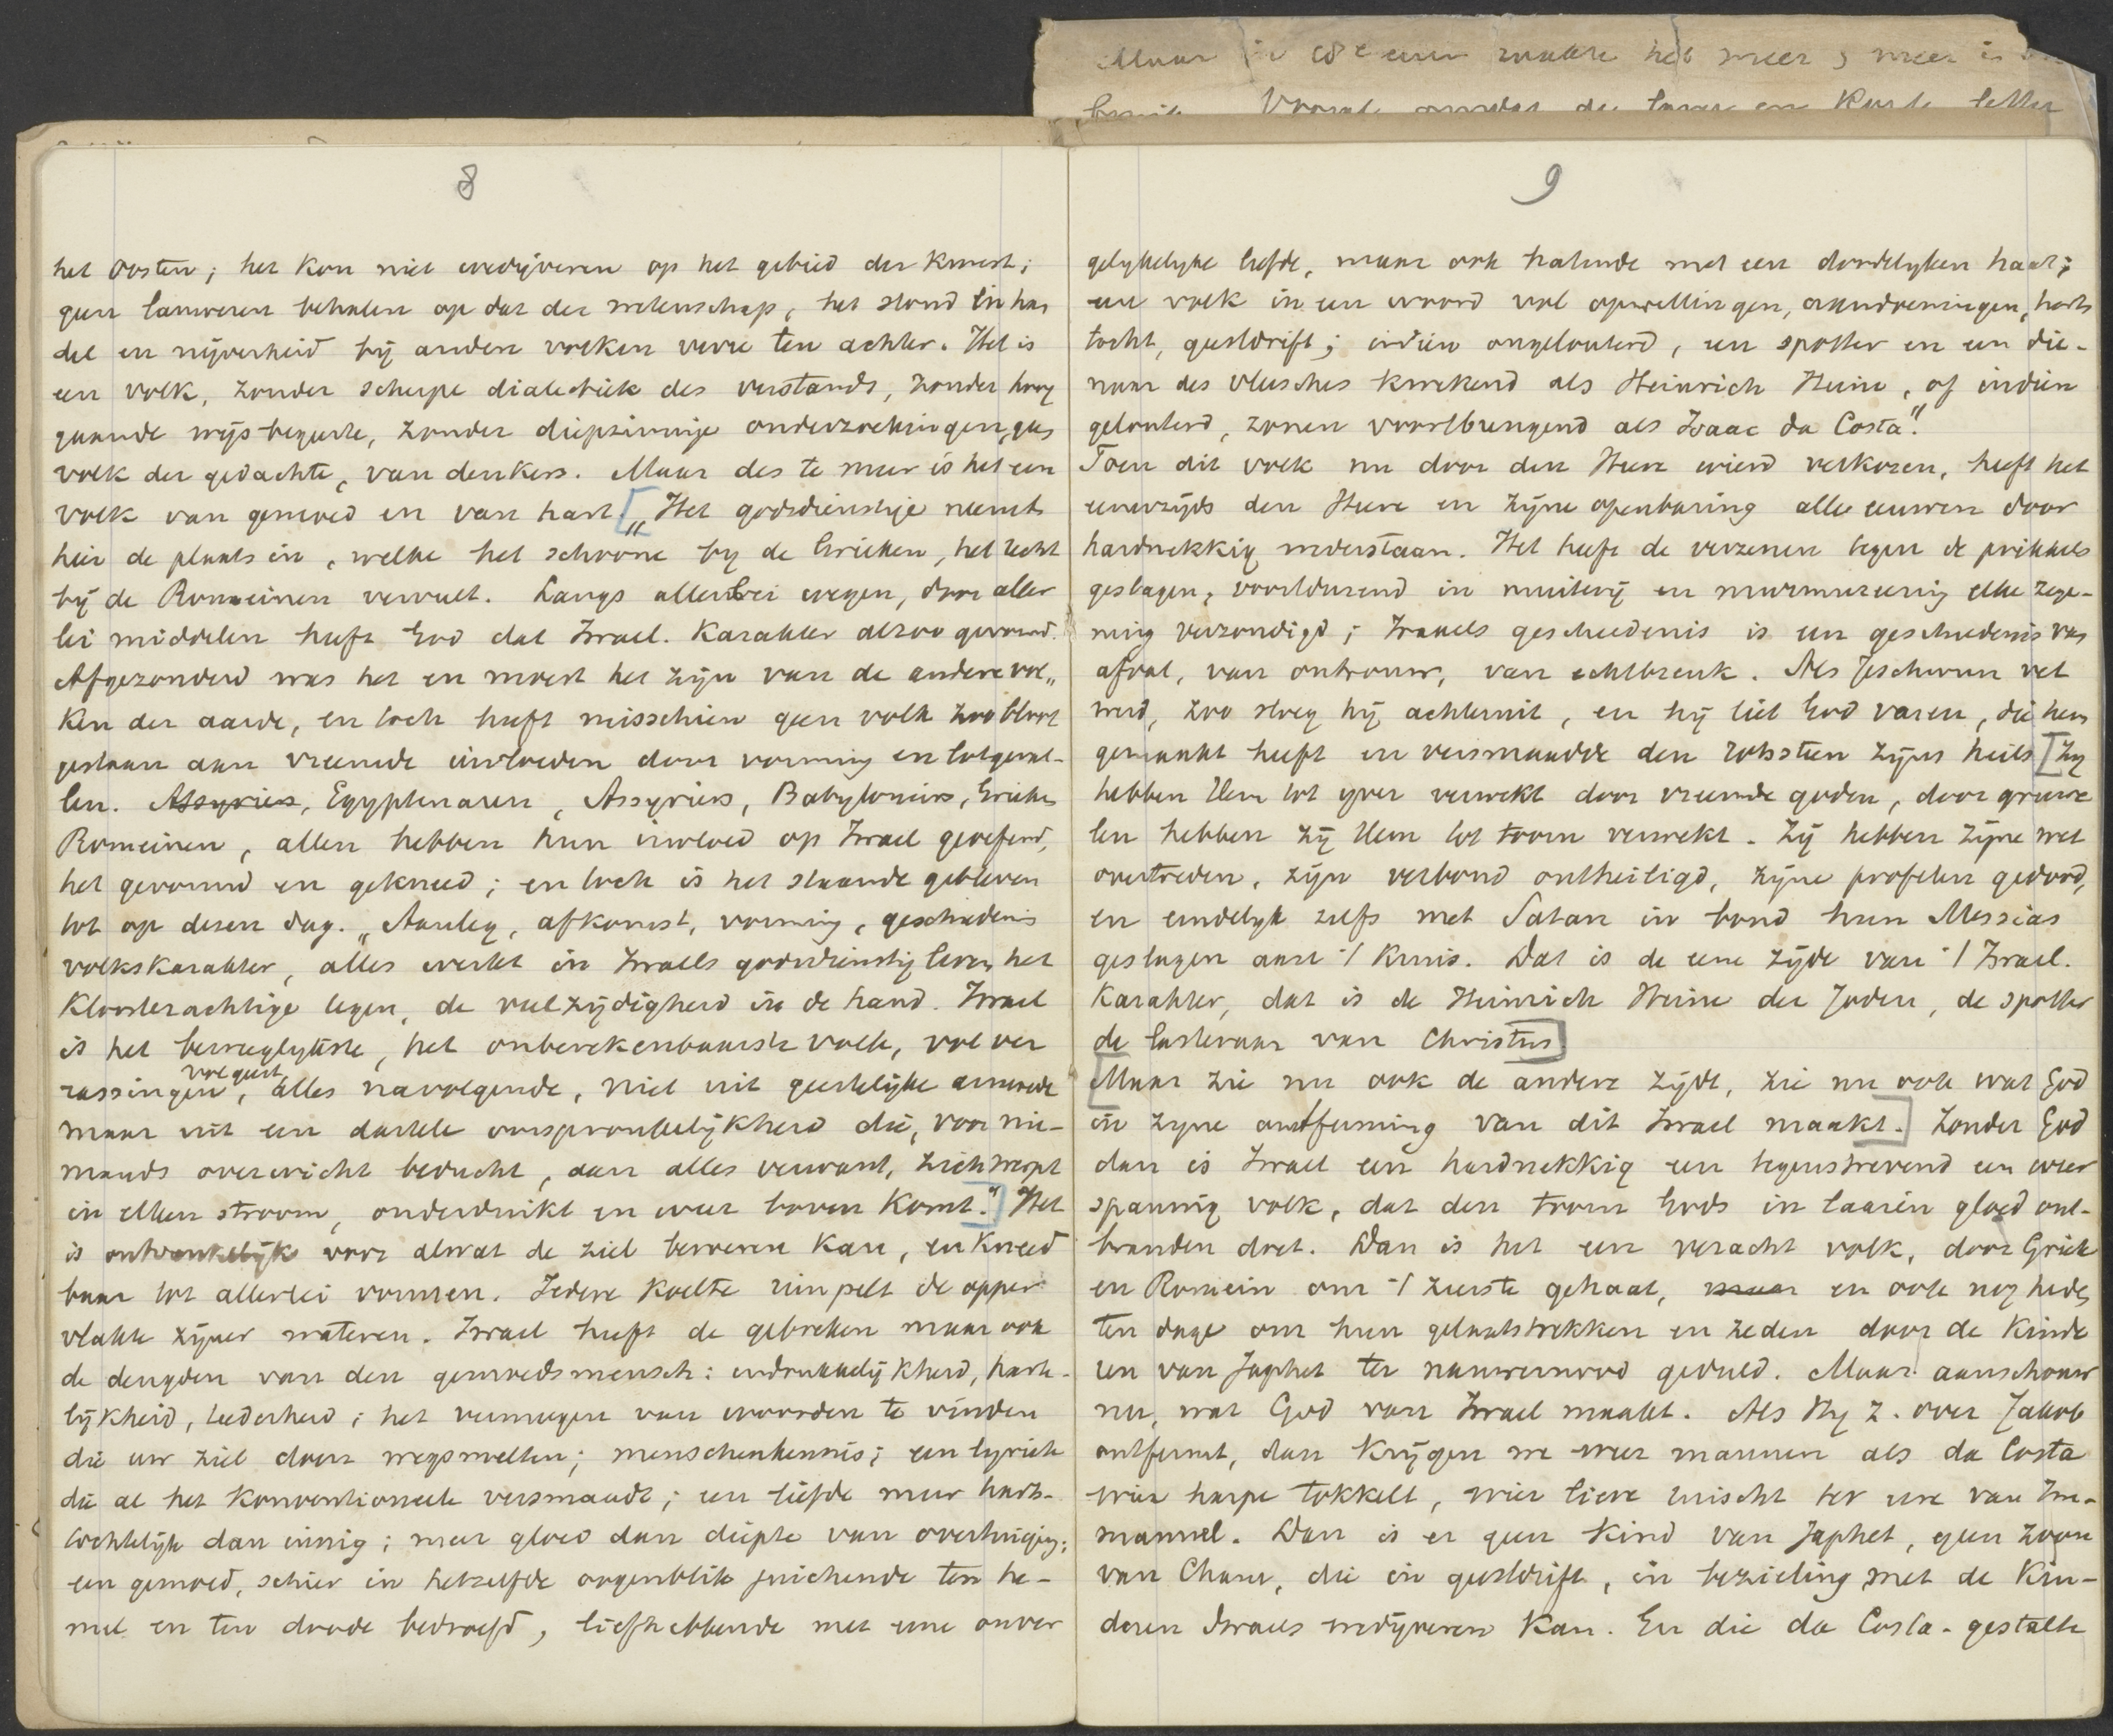 Maar in 18e eeuw raakte het meer & meer in
Vooral omdat de lange en korte letter
8
het Oosten; het kon niet wedijveren op het gebied der kunst;
geen lauweren behalen op dat der wetenschap, het stond in han
del en nijverheid bij andere volken verre ten achter. Het is
een volk, zonder scherpe dialectiek des verstands, zonder hoog
gaande wijsbegeerte, zonder diepzinnige onderzoekingen, geen
volk der gedachte, van denkers. Maar des te meer is het een
volk van gemoed en van hart. [„Het godsdienstige neemt
hier de plaats in, welke het schoone bij de Grieken, het recht
bij de Romeinen vervult. Langs allerlei wegen, door aller
lei middelen heeft God dat Israel. karakter alzoo gevormd.
Afgezonderd was het en moest het zijn van de andere vol„
ken der aarde, en toch heeft misschien geen volk zoo bloot
gestaan aan vreemde invloeden door vorming en lotgeval-
len. Assyriers, Egyptenaren, Assyriers, Babyloniers, Grieken
Romeinen, allen hebben hun invloed op Israel geoefend,
het gevormd en gekneed; en toch is het staande gebleven
tot op dezen dag. „Aanleg, afkomst, vorming, geschiedenis
volkskarakter, alles werkt in Israels godsdienstig leven het
kloosterachtige tegen, de veelzijdigheid in de hand. Israel
is het beweeglijkste, het onberekenbaarste volk, vol ver
rassingen, vol geest, alles navolgende, niet uit geestelijke armoede
maar uit een dartele oorspronkelijkheid die, voor nie-
mands overwicht beducht, aan alles verwant, zich werpt
in elken stroom, onderduikt en weer boven komt.”] Het
is ontvankelijk voor alwat de ziel bewegen kan, en kneed
baar tot allerlei vormen. Iedere koelte rimpelt de opper
vlakte zijner wateren. Israel heeft de gebreken maar ook
de deugden van den gemoedsmensch: indrukkelijkheid, harte-
lijkheid, teederheid; het vermogen van woorden te vinden
die uw ziel doen wegsmelten; menschenkennis; een lyriek
die al het konventioneele versmaadt; een liefde meer harts-
tochtelijk dan innig; meer gloed dan diepte van overtuiging;
een gemoed, schier in hetzelfde oogenblik juichende ten he-
mel en ten doode bedroefd, liefhebbende met eene onver
9
gelijkelijke liefde, maar ook hatende met een doodelijken haat;
een volk in een woord vol opwellingen, aandoeningen, harts
tocht, geestdrift; indien ongelouterd, een spotter en een die-
naar des vleesches kweekend als Heinrich Heine, of indien
gelouterd, zonen voortbrengend als Isaac da Costa”.
Toen dit volk nu door den Heere wierd verkoren, heeft het
eenerzijds den Heere en zijne openbaring alle eeuwen door
hardnekkig wederstaan. Het heeft de verzenen tegen de prikkels
geslagen, voortdurend in muiterij en murmureering elke zege-
ning verzondigd; Israels geschiedenis is een geschiedenis van
afval, van ontrouw, van echtbreuk. Als Jeschurun vet
werd, zoo sloeg hij achteruit, en hij liet God varen, die hem
gemaakt heeft en versmaadde den rotssteen zijns heils [Zij
hebben Hem tot ijver verwekt door vreemde goden, door gruwe
len hebben zij Hem tot toorn verwekt. Zij hebben zijne wet
overtreden, zijn verbond ontheiligd, zijne profeten gedood,
en eindelijk zelfs met Satan in bond hun Messias
geslagen aan ·/ kruis. Dat is de eene zijde van ·/ Israel.
karakter, dat is de Heinrich Heine der Joden, de spotter
de lasteraar van Christus]
[Maar zie nu ook de andere zijde, zie nu ook wat God
in zijne ontferming van dit Israel maakt.] Zonder God
dan is Israel een hardnekkig een tegenstrevend een weer
spannig volk, dat den toorn Gods in laaien gloed ont-
branden doet. Dan is het een veracht volk, door Griek
en Romein om ·/ zeerste gehaat, maar en ook nog heden
ten dage om hun gelaatstrekken en zeden door de kinde
ren van Japhet ter nauwernood geduld. Maar aanschouw
nu, wat God van Israel maakt. Als Hij z. over Jakob
ontfermt, dan krijgen we weer mannen als da Costa
wier harpe tokkelt, wier liere ruischt ter eere van Im-
manuel. Dan is er geen kind van Japhet, geen zoon
van Cham, die in geestdrift, in bezieling met de kin-
deren Israels wedijveren kan. En die da Costa-gestalte